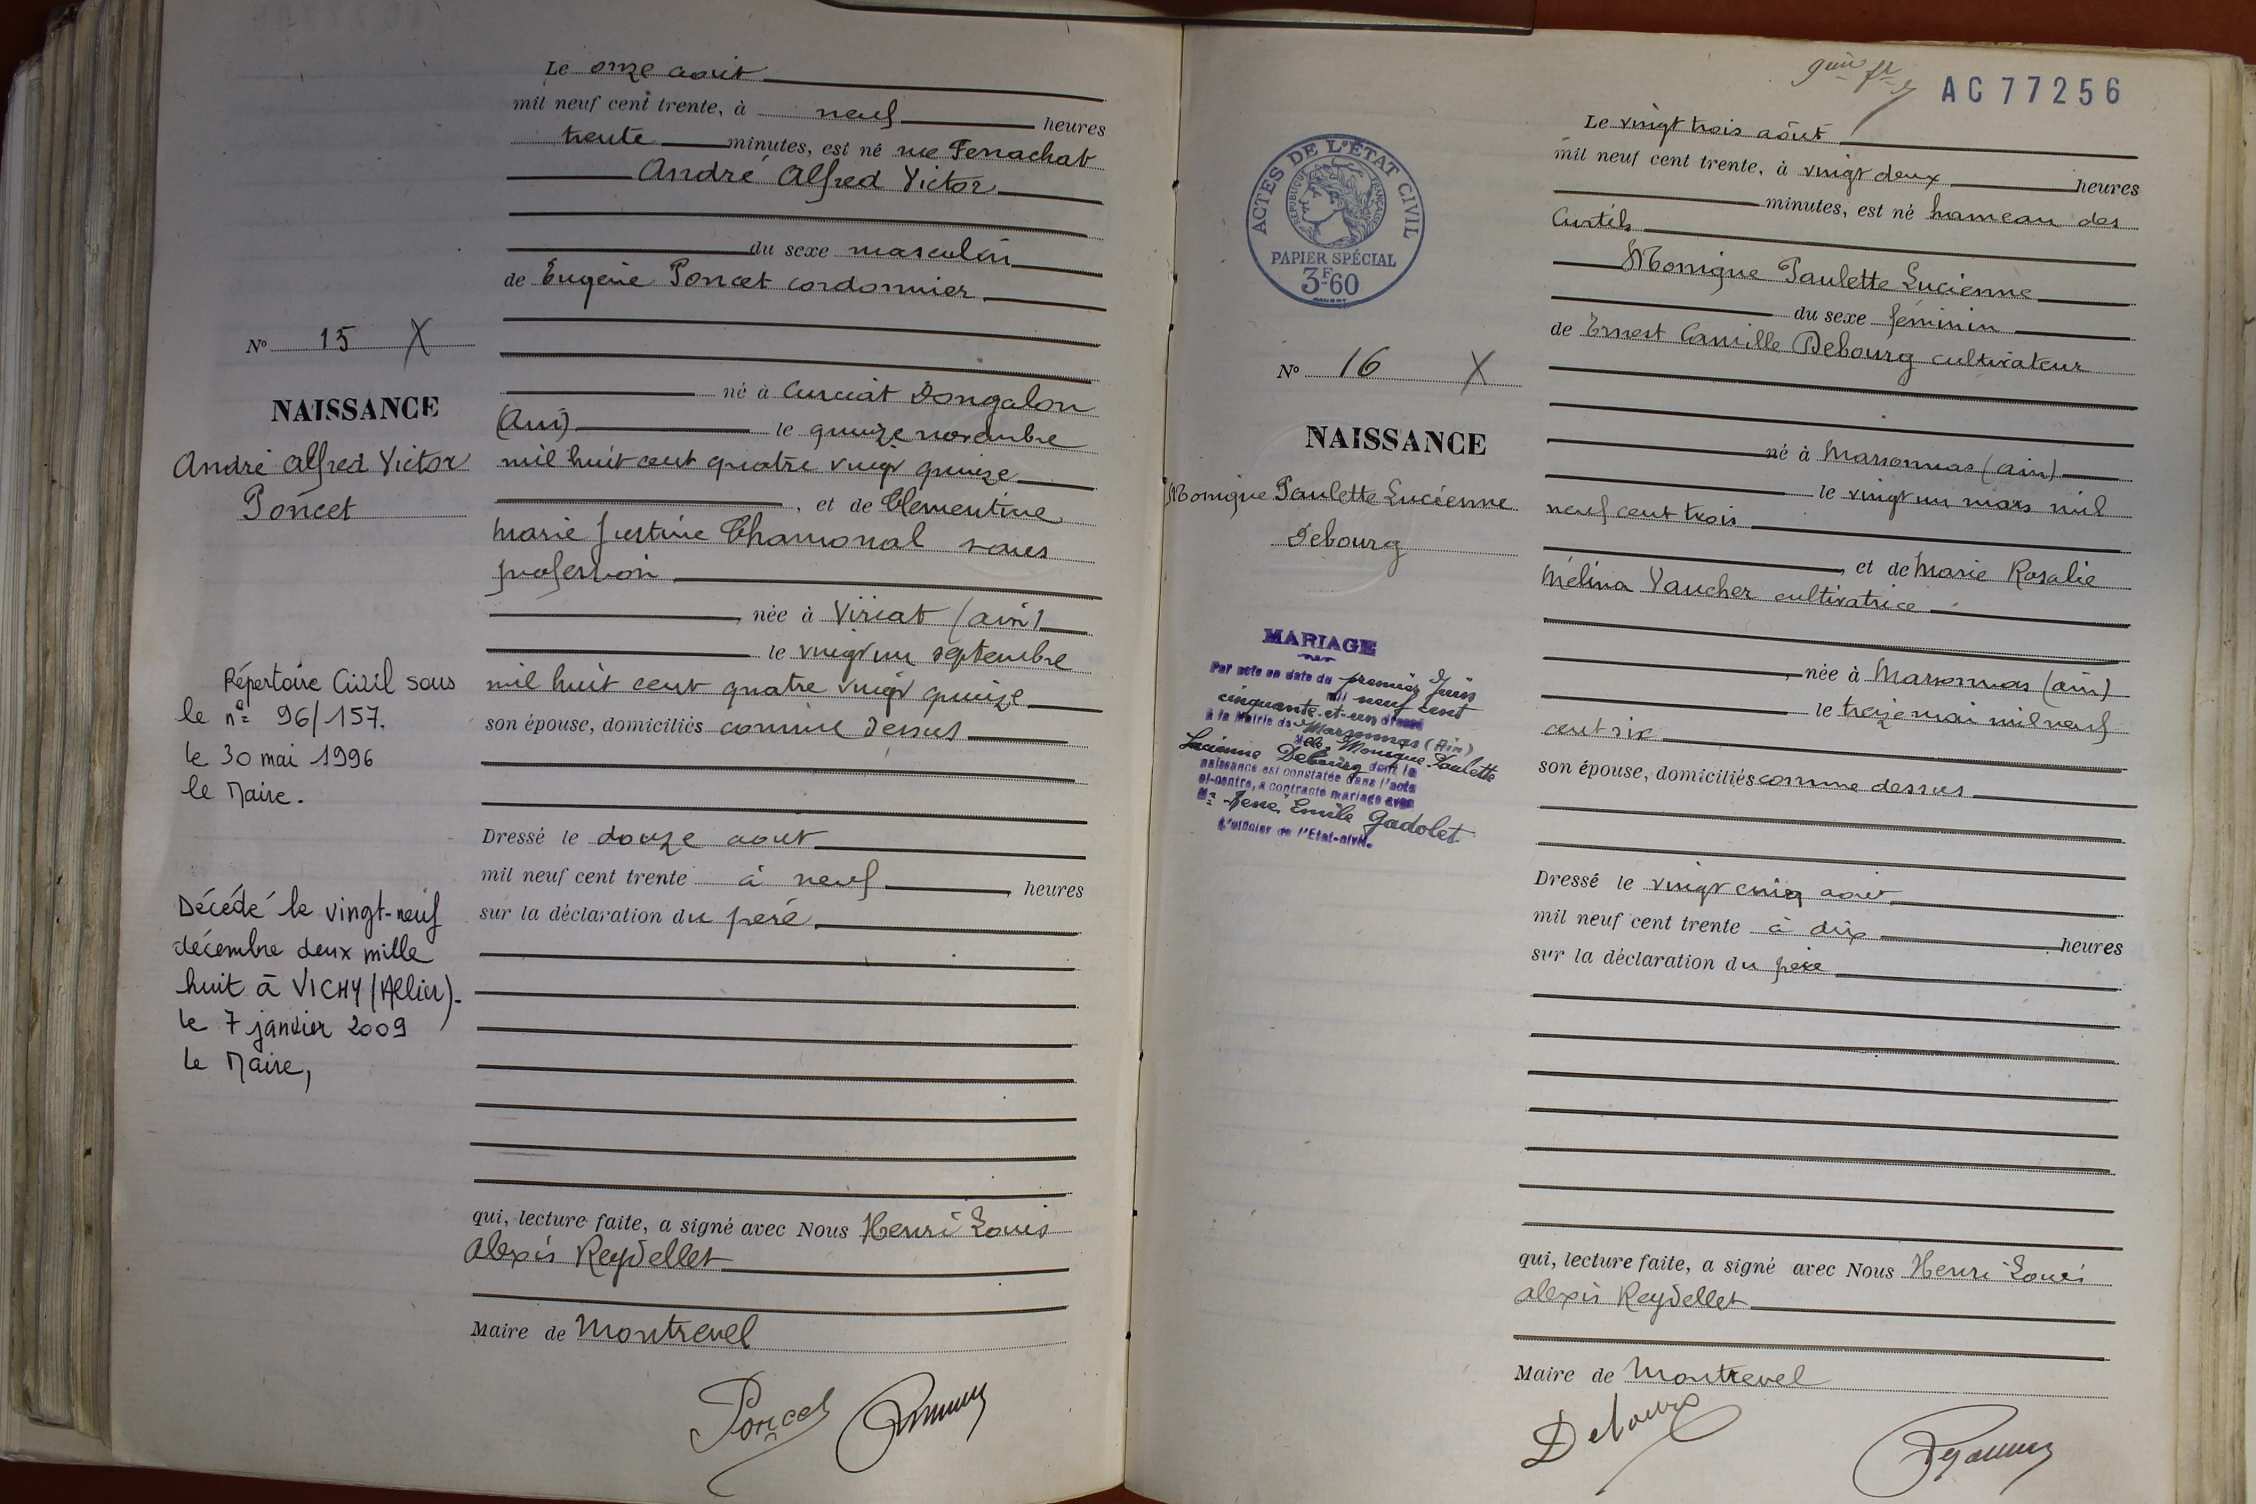 Le onze aout
mil neuf cent trente, à neuf heures
trente minutes, est né rue Ferrachat
André Alfred Victor
du sexe masculin
de Eugène Poncet cordonnier
né à Curciat Dongalon
(Ain) le quinze novembre
mil huit cent quatre vingt quinze
, et de Clementine
Marie Justine Chamonal sans
profession
, née à Viriat (Ain)
le vingt un septembre
mil huit cent quatre vingt quinze
son épouse, domiciliés comme dessus
Dressé le douze aout
mil neuf cent trente à neuf , heures
sur la déclaration du père
qui, lecture faite, a signé avec Nous Henri Louis
Alexis Reydellet
Maire de Montrevel
Poncet
No 15 X
NAISSANCE
André Alfred Victor
Poncet
Répertoire Civil sous
le n° 96/157.
le 30 mai 1996
le Maire.
Décédé le vingt-neuf
décembre deux mille
huit à VICHY (Allier).
le 7 janvier 2009
le Maire,
AC 77256
Le vingt trois août
mil neuf cent trente, à vingt deux heures
minutes, est né hameau des
Curtils
Monique Paulette Lucienne
du sexe féminin
de Ernest Camille Debourg cultivateur
né à Marsonnas (Ain)
le vingt un mars mil
neuf cent trois
, et de Marie Rosalie
Mélina Vaucher cultivatrice
, née à Marsonnas (Ain)
le treize mai mil neuf
cent six
son épouse, domiciliés comme dessus
Dressé le vingt cinq aout
mil neuf cent trente à dix heures
sur la déclaration du père
qui, lecture faite, a signé avec Nous Henri Louis
Alexis Reydellet
Maire de Montrevel
Debourg
ACTES DE L'ÉTAT CIVIL
RÉPUBLIQUE FRANÇAISE
PAPIER SPÉCIAL
3F60
No 16 X
NAISSANCE
Monique Paulette Lucienne
Debourg
MARIAGE
Par acte en date du premier Juin
mil neuf cent
cinquante-et-un dressé
à la Mairie de Marsonnas (Ain)
Monique Paulette
Lucienne Debourg dont la
naissance est constatée dans l'acte
ci-contre, a contracté mariage avec
Mr René Emile Gadolet
L'officier de l'Etat-civil.